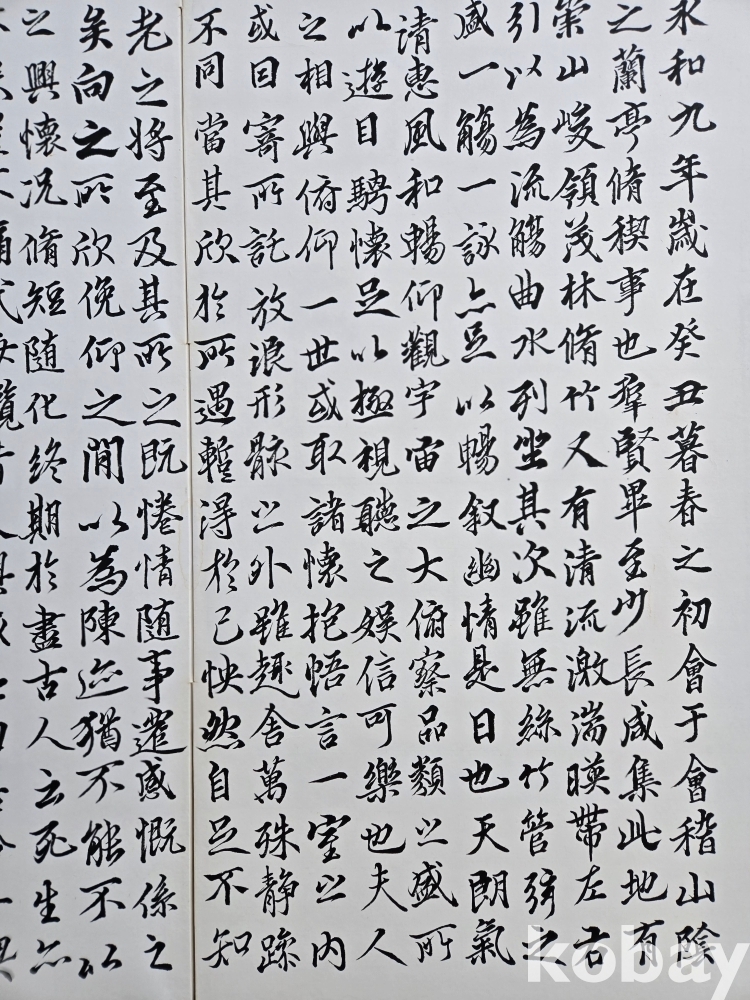 永和九年歲在癸丑暮春之初會于會稽山陰
之蘭亭脩稧事也羣賢畢至少長咸集此地有
崇山峻領茂林脩竹又有清流激湍暎帶左右
引以為流觴曲水列坐其次雖無絲竹管弦之
盛一觴一詠亦足以暢叙幽情是日也天朗氣
清惠風和暢仰觀宇宙之大俯察品類之盛所
以遊目騁懷足以極視聽之娛信可樂也夫人
之相與俯仰一世或取諸懷抱悟言一室之內
或因寄所託放浪形骸之外雖趣舍萬殊靜躁
不同當其欣於所遇蹔得於己怏然自足不知
老之將至及其所之既惓情随事遷感慨係之
矣向之所欣俛仰之閒以為陳迹猶不能不以
之興懷况脩短随化終期於盡古人云死生亦
kobay